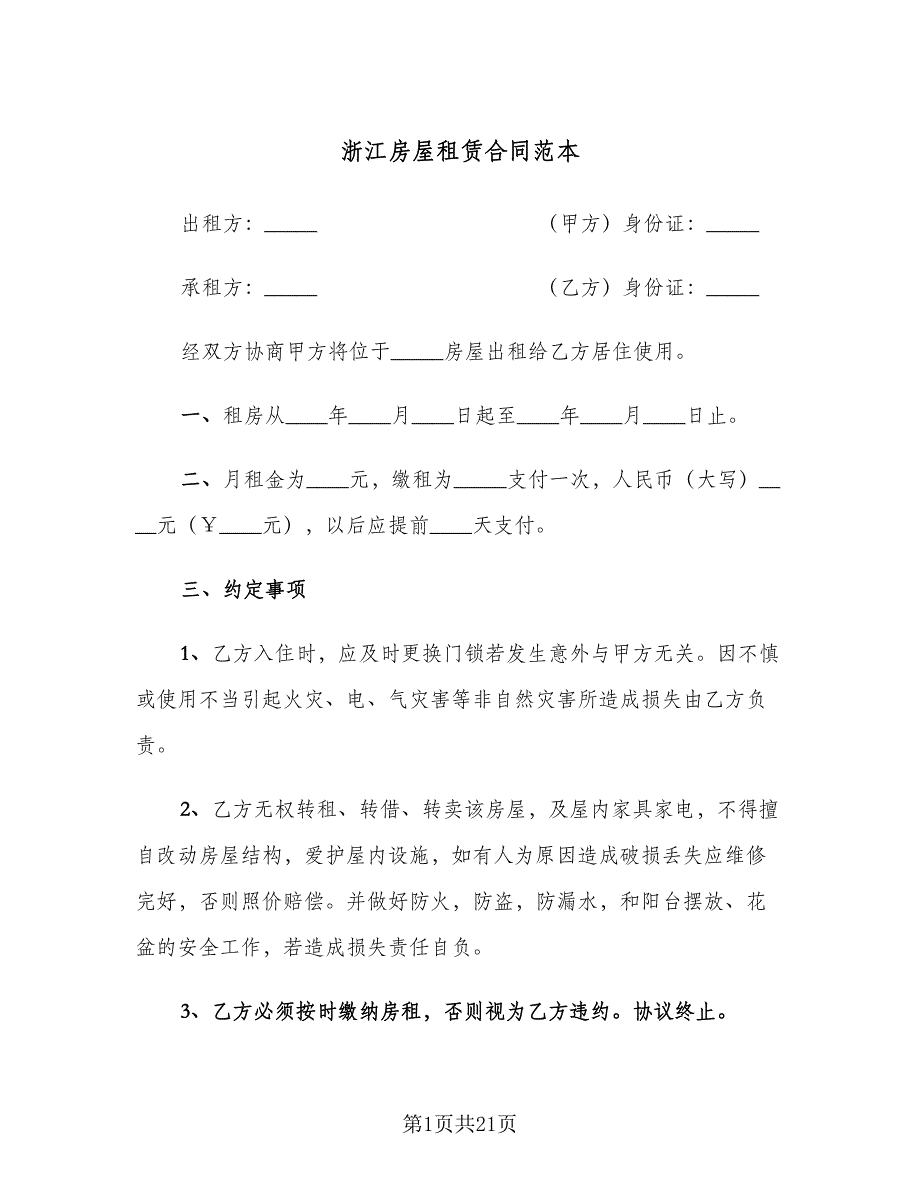 浙江房屋租赁合同范本
出租方：_____ （甲方）身份证：_____
承租方：_____ （乙方）身份证：_____
经双方协商甲方将位于_____房屋出租给乙方居住使用。
一、租房从____年____月____日起至____年____月____日止。
二、月租金为____元，缴租为_____支付一次，人民币（大写）__
__元（￥____元），以后应提前____天支付。
三、约定事项
1、乙方入住时，应及时更换门锁若发生意外与甲方无关。因不慎
或使用不当引起火灾、电、气灾害等非自然灾害所造成损失由乙方负
责。
2、乙方无权转租、转借、转卖该房屋，及屋内家具家电，不得擅
自改动房屋结构，爱护屋内设施，如有人为原因造成破损丢失应维修
完好，否则照价赔偿。并做好防火，防盗，防漏水，和阳台摆放、花
盆的安全工作，若造成损失责任自负。
3、乙方必须按时缴纳房租，否则视为乙方违约。协议终止。
第1页共21页